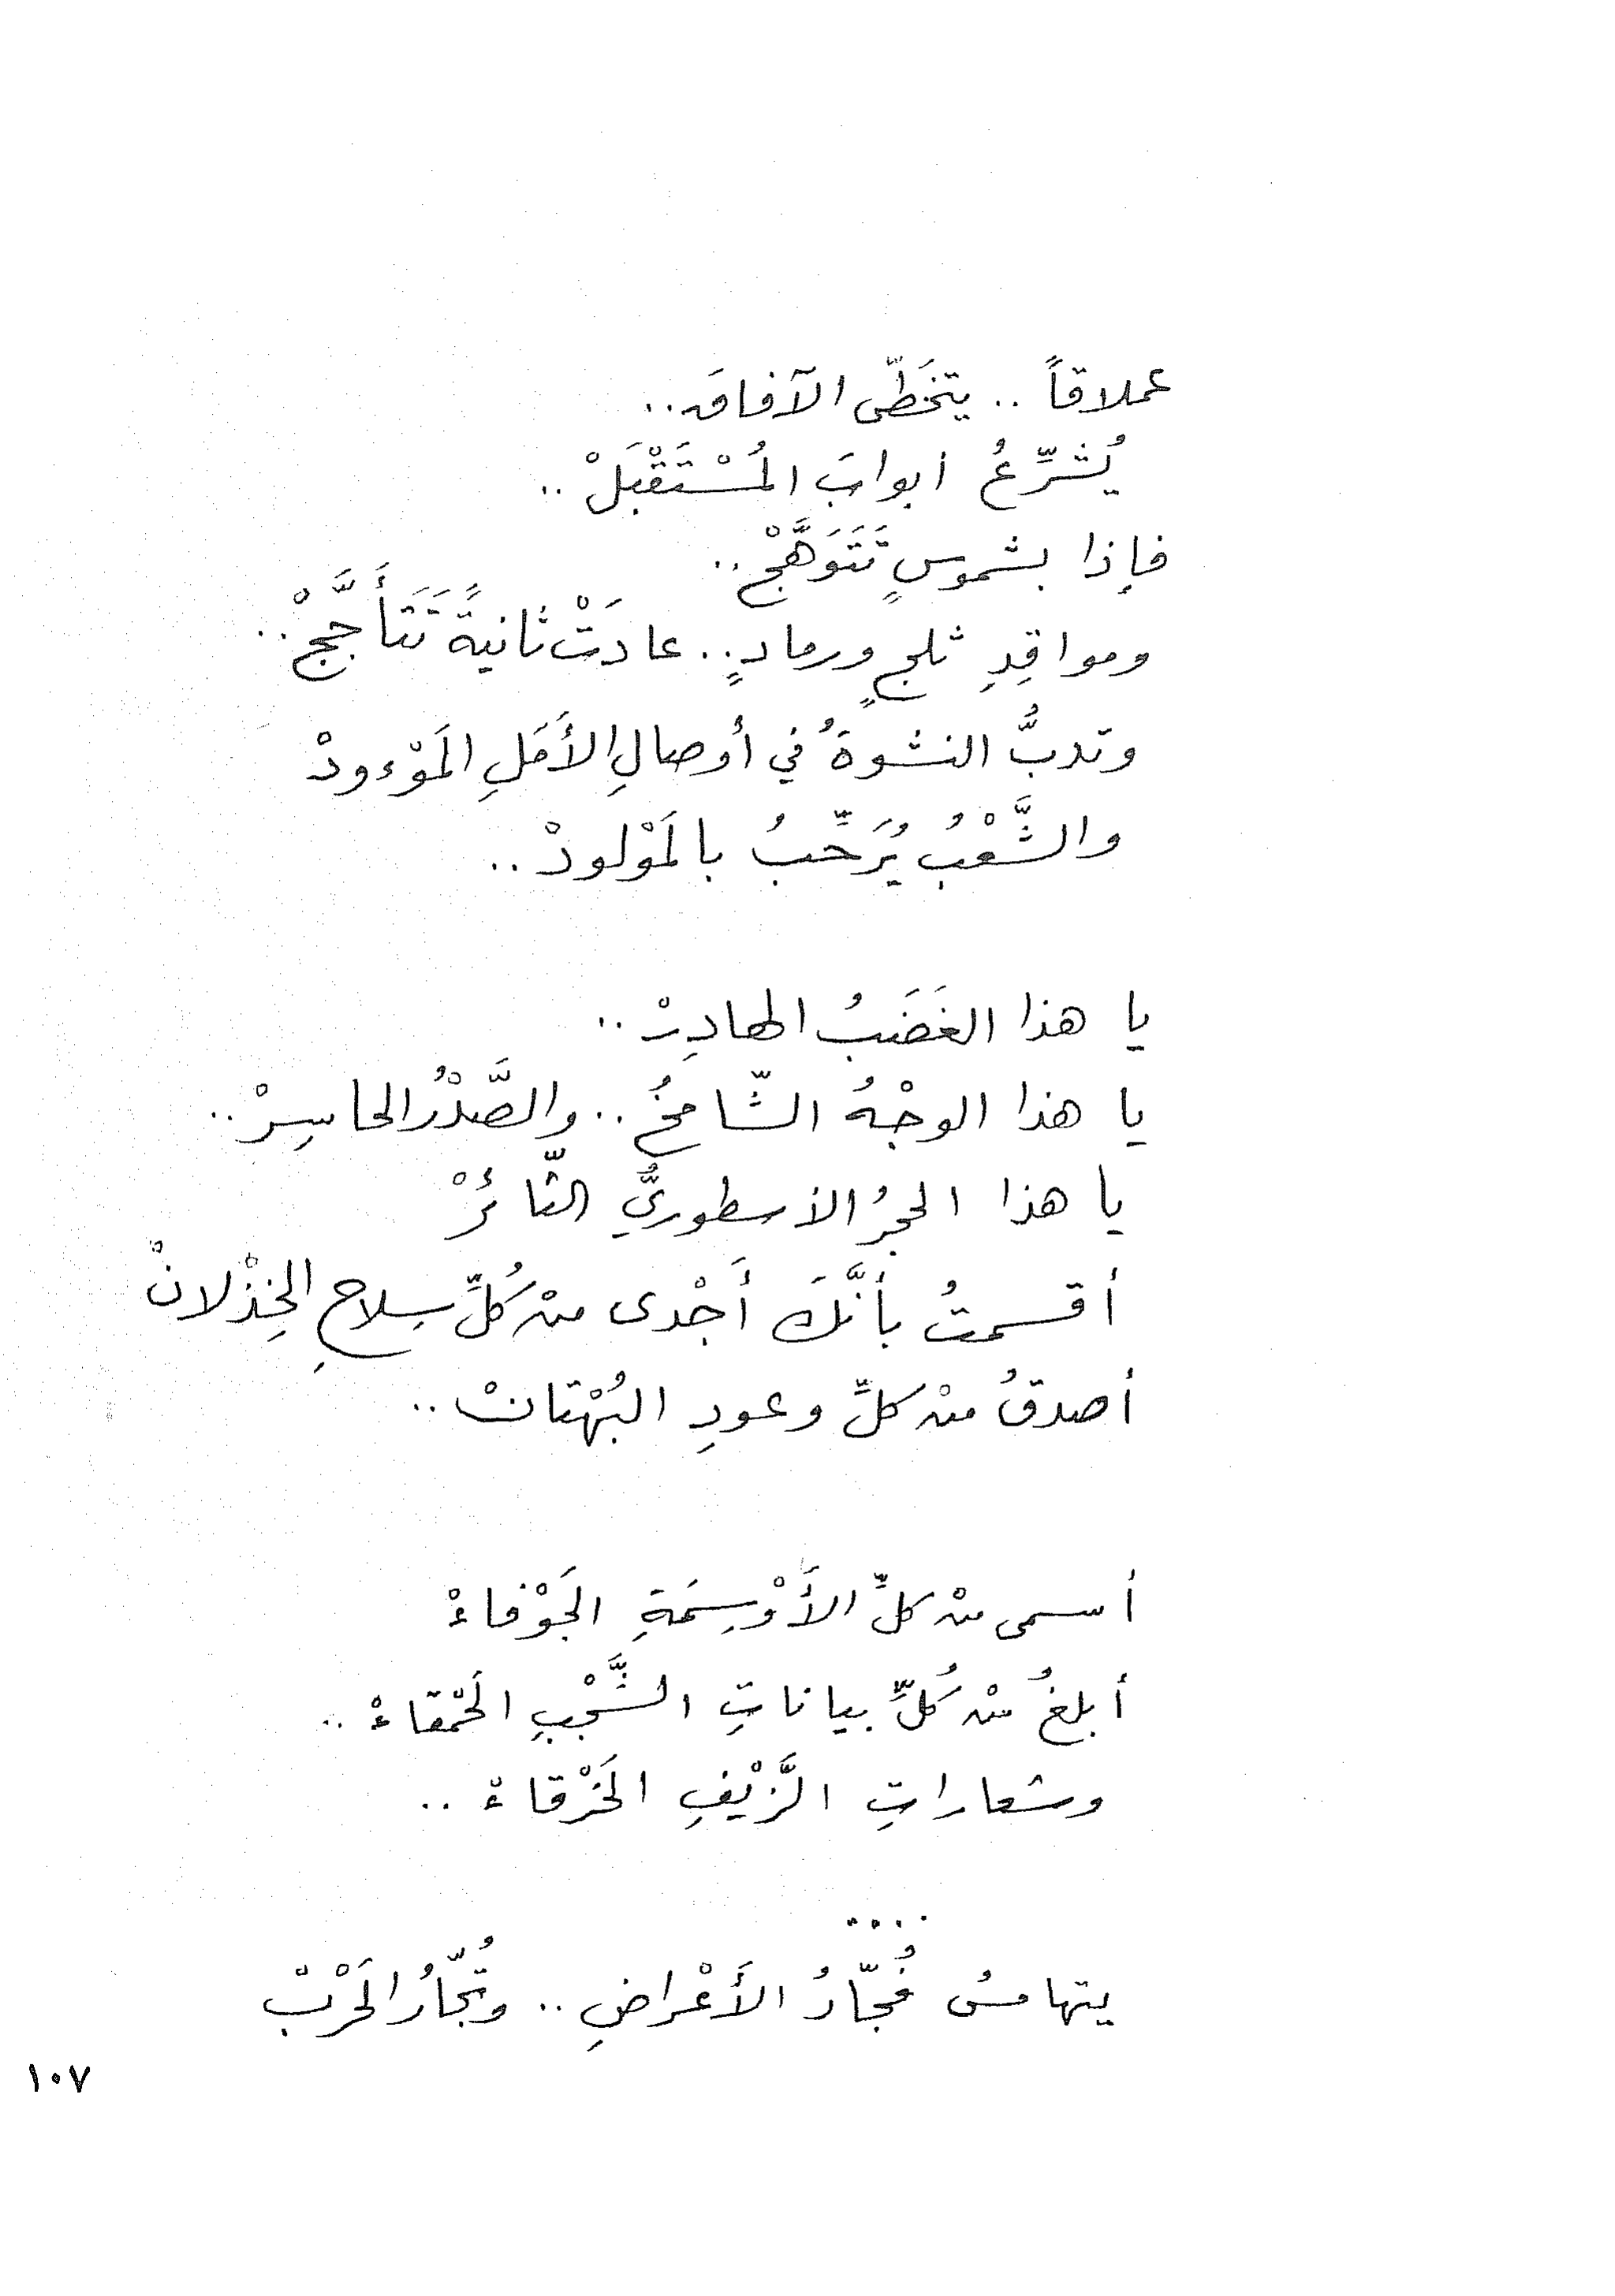 عملاقاً .. يتخَطّى الآفاقَ..
يُشَرِّعُ ابوابَ المُسْتَقْبَلْ ..
فإذا بشموسٍ تَتَوَهَّجْ ..
ومواقِدِ ثلجٍ ورمادٍ .. عادَتْ ثانيةً تَتَأَجَّجْ ..
وتدبُّ النشوةُ في أوصالِ الأَمَلِ المَوْءودْ
والشَّعْبُ يُرَحِّبُ بالمَوْلودْ ..
يا هذا الغَضَبُ الهادِرْ ..
يا هذا الوجْهُ الشّامخُ .. والصَّدْرُ الحاسِرْ ..
يا هذا الحجرُ الاسطوريُّ الثّائرْ
أقسمتُ بأنَّكَ أَجْدى منْ كُلِّ سِلاحِ الخِذْلانْ
أصدقُ منْ كلِّ وعودِ البُهْتانْ ..
أسمى منْ كلِّ الأَوْسِمَةِ الجَوْفاءْ
أبلغُ منْ كُلِّ بياناتِ الشَّجْبِ الحَمْقاءْ ..
وشعاراتِ الزَّيْفِ الخَرْقاءْ ..
....
يتهامسُ فُجّارُ الأَعْراضِ .. وتُجّارُ الحَرْبْ
١٠٧